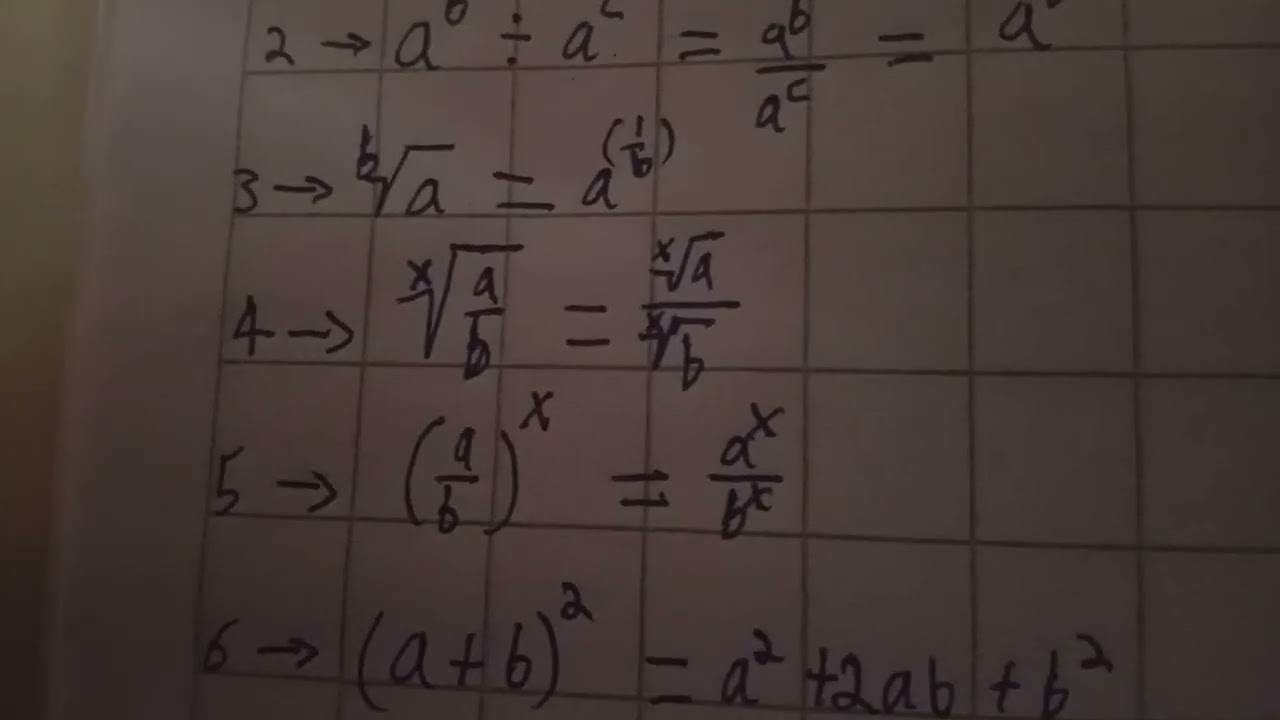 2 → a^b ÷ a^c = a^b/a^c = a
3 → ᵇ√a = a^(1/b)
4 → ˣ√(a/b) = ˣ√a/ˣ√b
5 → (a/b)^x = a^x/b^x
6 → (a+b)^2 = a^2 +2ab + b^2